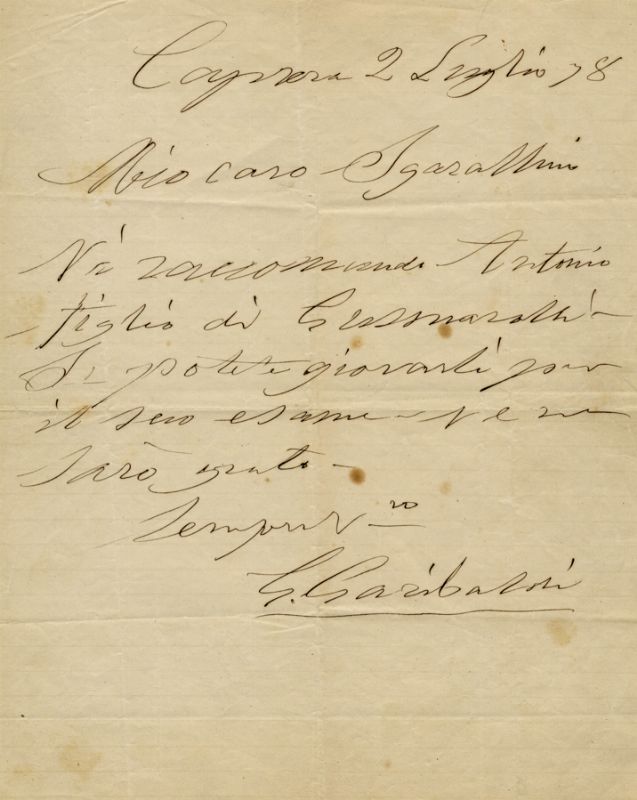 Caprera 2 Luglio 78
Mio caro Sgarallino
Vi raccomando Antonio
figlio di Gusmaroli-
Se potete giovarli per
il suo esame - Ve ne
sarò grato -
Sempre V.ro
G. Garibaldi